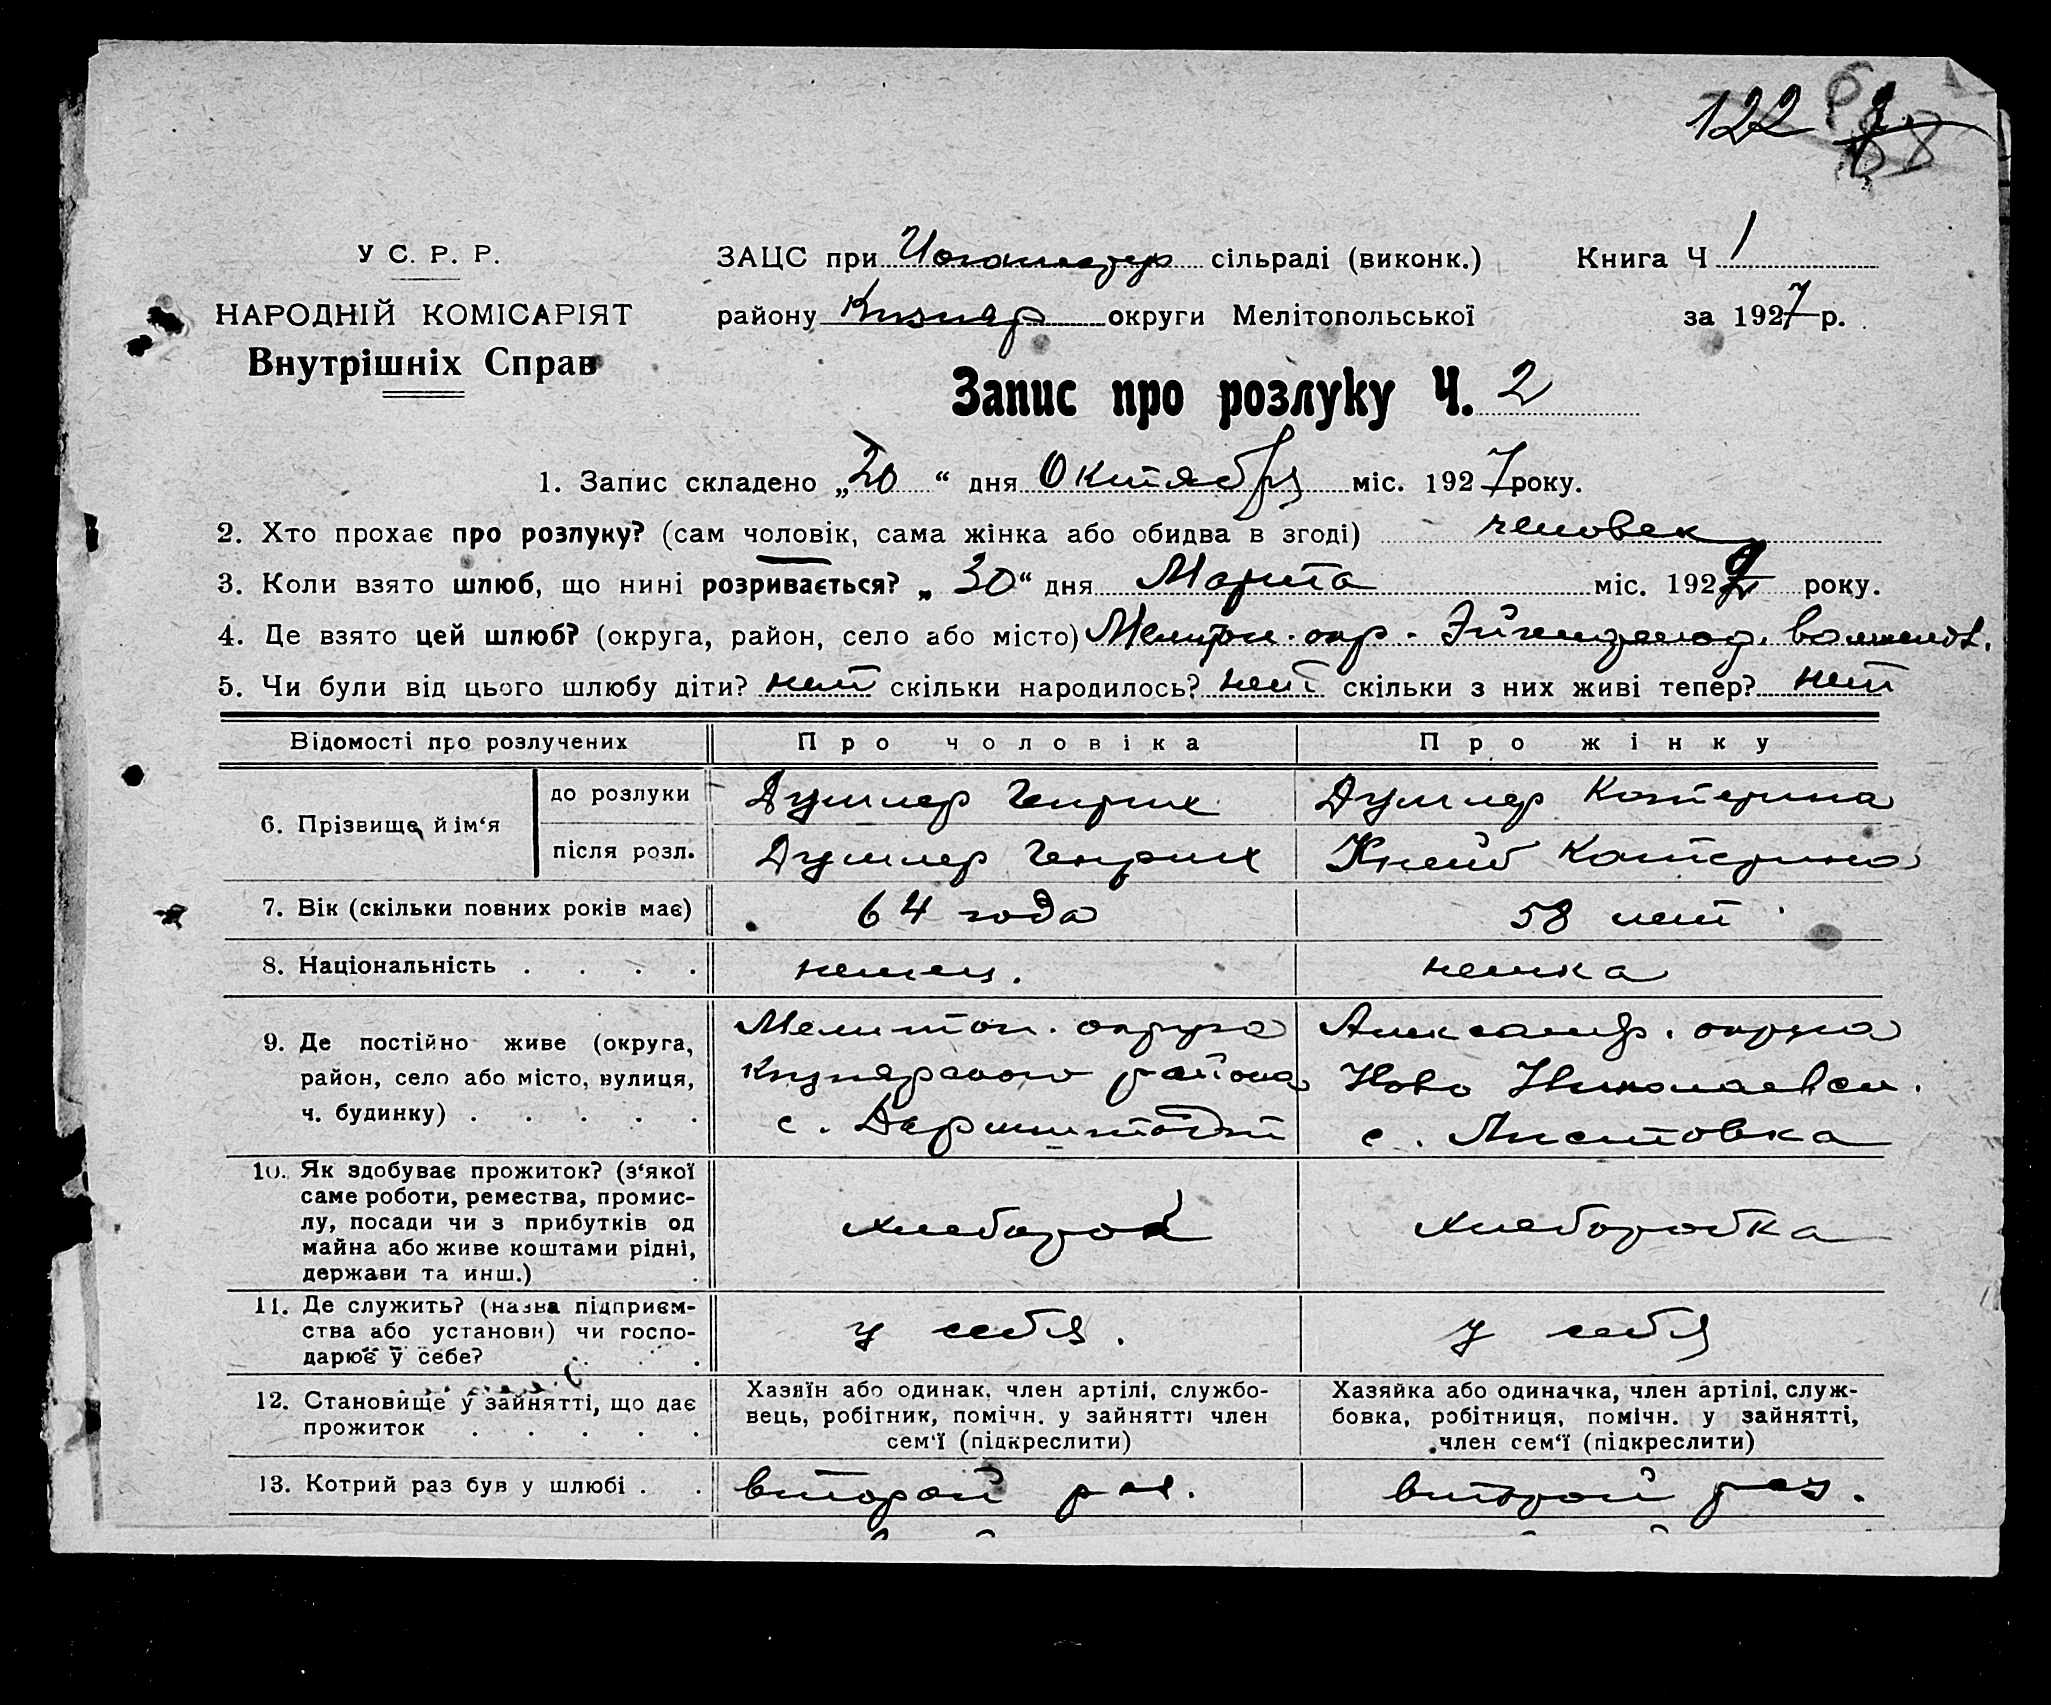 122
У С. Р. Р.
НАРОДНІЙ КОМІСАРІЯТ
Внутрішніх Справ
ЗАЦС при сільраді (виконк.) Книга Ч 1
району Кизияр округи Мелітопольської за 1927 р.
Запис про розлуку Ч. 2
1. Запис складено „20“ дня Октября міс. 1927 року.
2. Хто прохає про розлуку? (сам чоловік, сама жінка або обидва в згоді) человек
3. Коли взято шлюб, що нині розривається? „30“ дня Марта міс. 192 року.
4. Де взято цей шлюб? (округа, район, село або місто) Мелитоп. окр.
5. Чи були від цього шлюбу діти? нет скільки народилось? нет скільки з них живі тепер? нет
Відомості про розлучених Про чоловіка Про жінку
6. Прізвище й ім‘я
до розлуки Думлер Генрих Думлер Катерина
після розл. Думлер Генрих Кнейб Катерина
7. Вік (скільки повних років має) 64 года 58 лет
8. Національність . . . . немец. немка
9. Де постійно живе (округа, район, село або місто, вулиця, ч. будинку) . . . . .
Мелитоп. округа
Кизиярского района
с. Дармштадт
Александр. округа
Ново Николаевск.
с. Листовка
10. Як здобуває прожиток? (з‘якої саме роботи, ремества, промислу, посади чи з прибутків од майна або живе коштами рідні, держави та инш.)
хлебороб хлеборобка
11. Де служить? (назва підприємства або установи) чи господарює у себе?
у себя. у себя
12. Становище у зайнятті, що дає прожиток . . . . .
Хазяїн або одинак, член артілі, службовець, робітник, помічн. у зайнятті член сем‘ї (підкреслити)
Хазяйка або одиначка, член артілі, службовка, робітниця, помічн. у зайнятті, член сем‘ї (підкреслити)
13. Котрий раз був у шлюбі . . второй раз. второй раз.